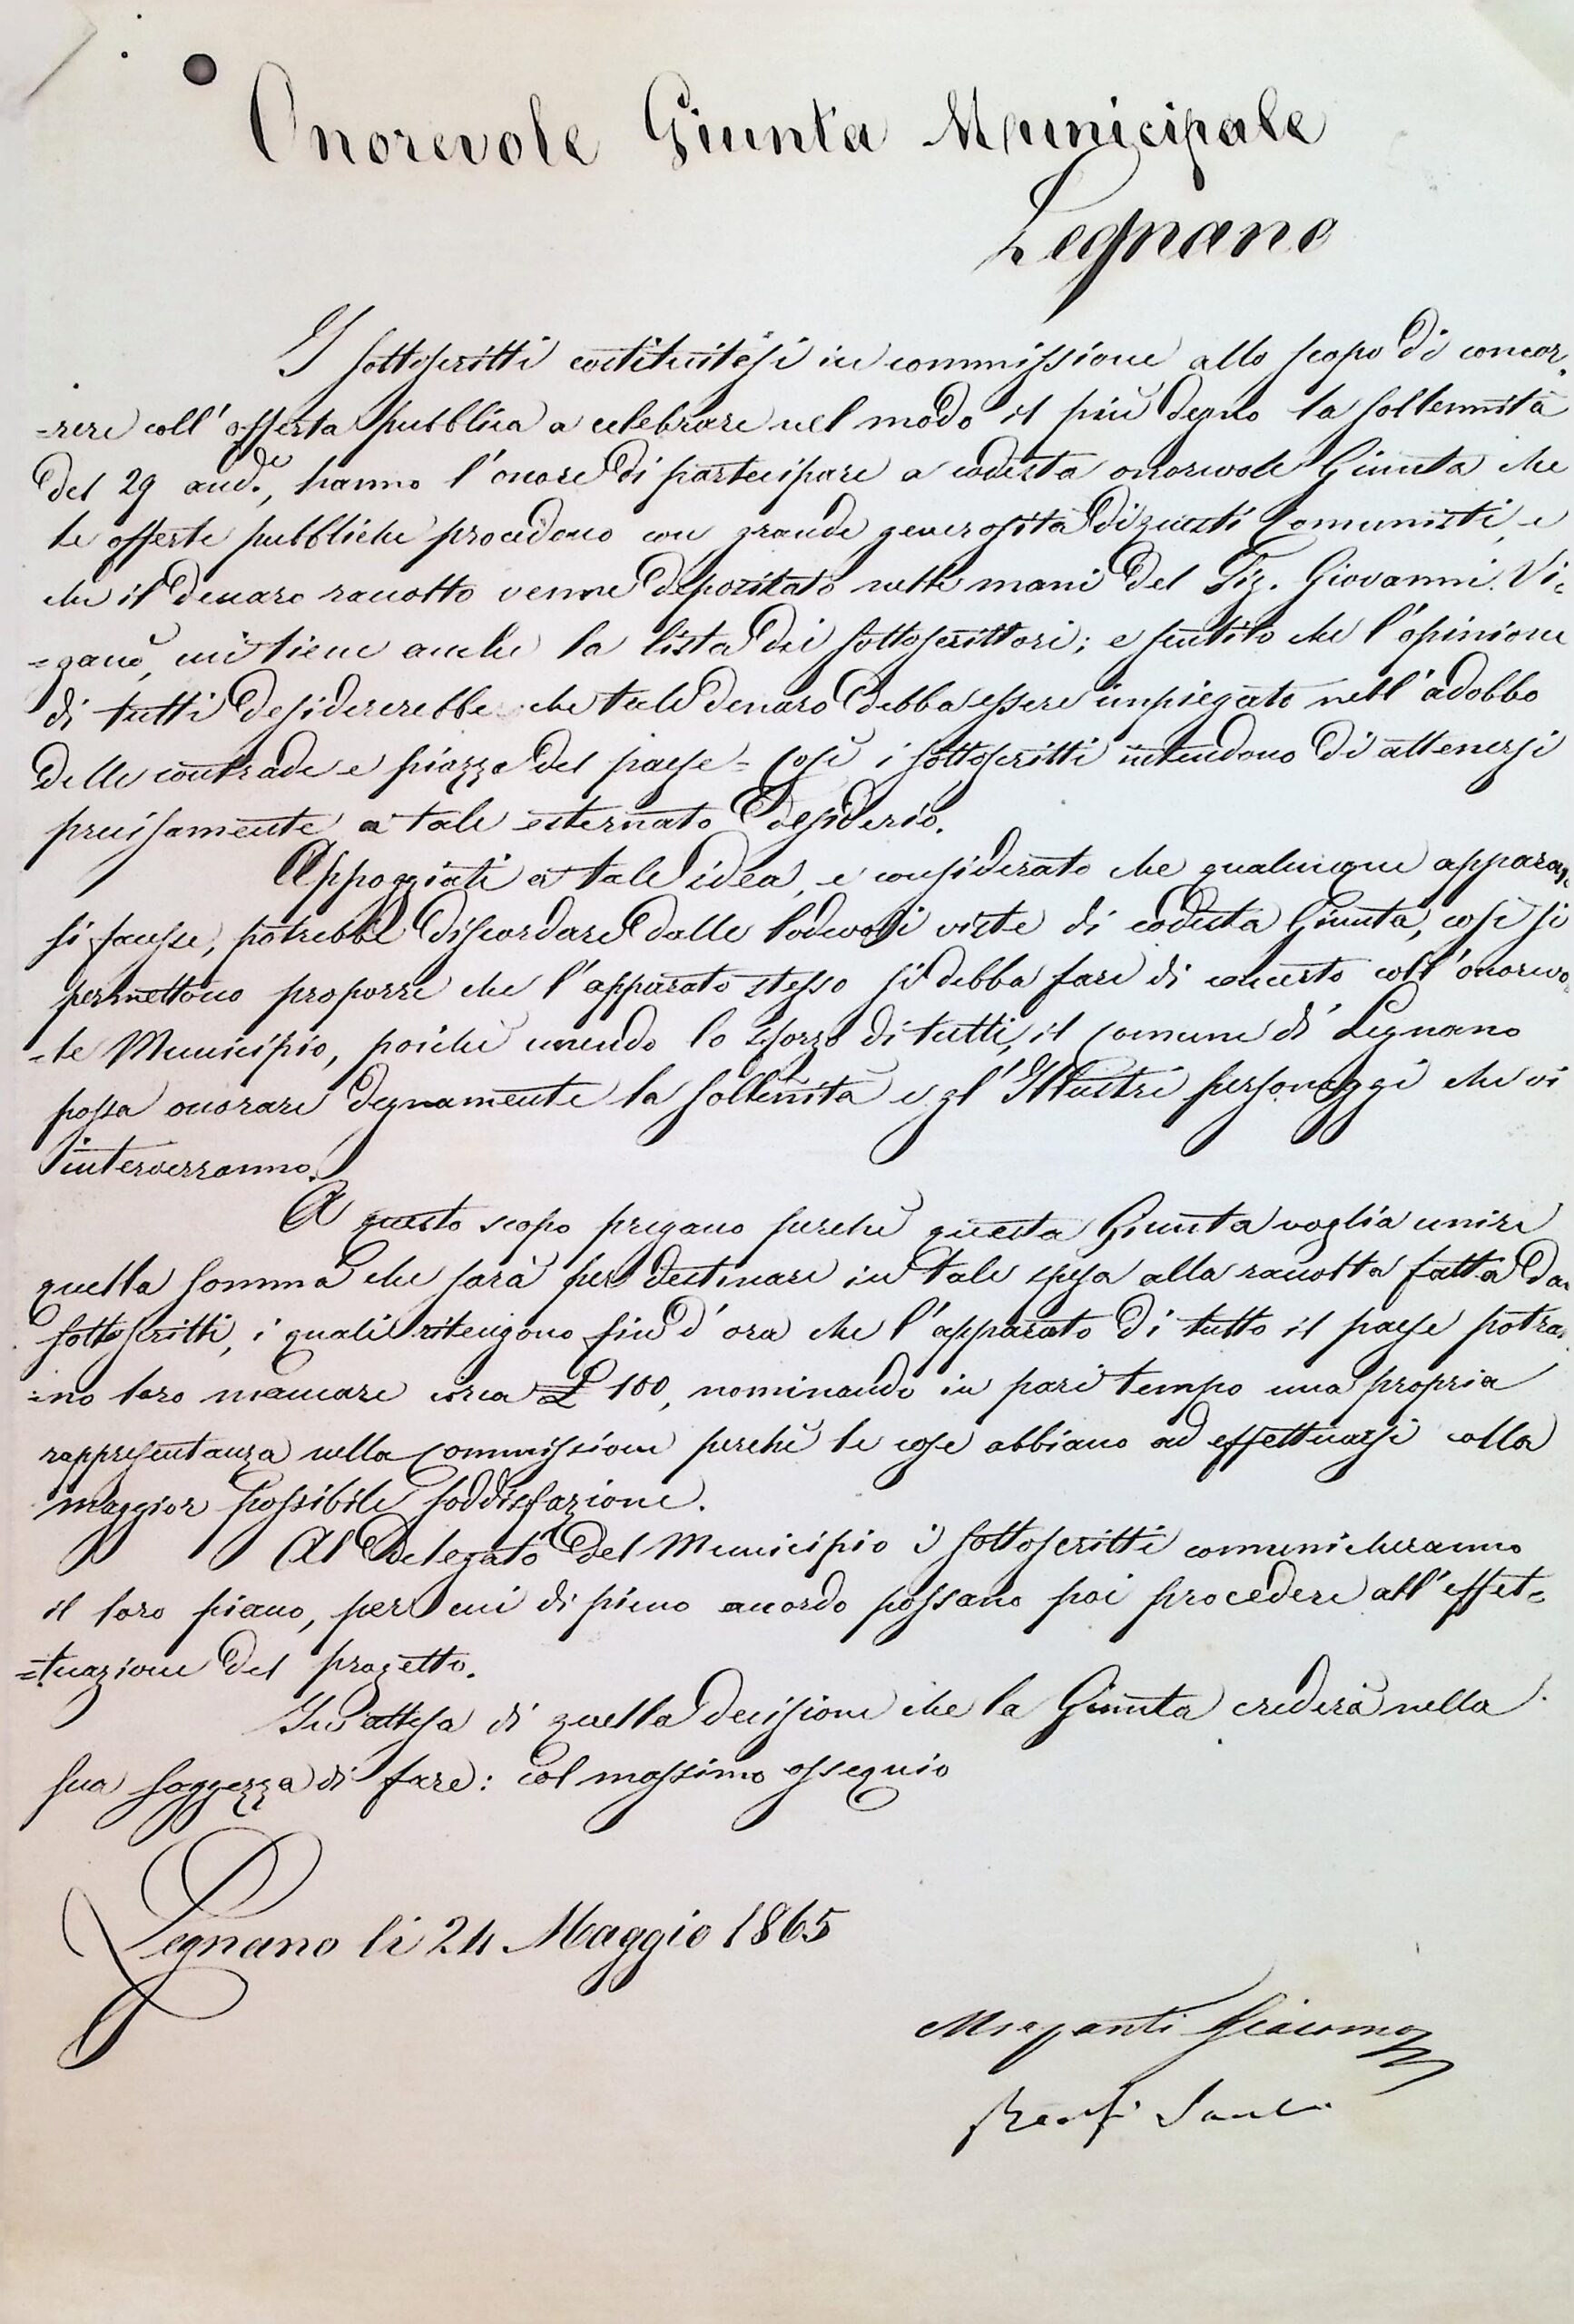 Onorevole Giunta Municipale
Legnano
I sottoscritti costituitisi in commissione allo scopo di concor=
=rere coll'offerta pubblica a celebrare nel modo il più degno la sollennità
del 29 and.e, hanno l'onore di partecipare a codesta onorevole Giunta che
le offerte pubbliche procedono con grande generosità di questi Comunisti, e
che il denaro raccolto venne depositato nelle mani del Sig. Giovanni Vi=
=ganò, cui tiene anche la lista dei sottoscrittori; e sentito che l'opinione
di tutti desidererebbe che tale denaro debba essere impiegato nell'adobbo
delle contrade e piazze del paese = così i sottoscritti intendono di attenersi
precisamente a tale esternato desiderio.
Appoggiati a tale idea, e considerato che qualunque apparato
si facesse, potrebbe discordare dalle lodevoli viste di codesta Giunta, così si
permettono proporre che l'apparato stesso si debba fare di concerto coll'onorevo=
=le Municipio, poichè unendo lo sforzo di tutti, il Comune di Legnano
possa onorare degnamente la sollennità e gl'Illustri personaggi che vi
interverranno.
A questo scopo pregano perchè questa Giunta voglia unire
quella somma che sarà per destinare in tale spesa alla raccolta fatta dai
sottoscritti, i quali ritengono fin d'ora che l'apparato di tutto il paese potran=
=no loro mancare circa £ 100, nominando in pari tempo una propria
rappresentanza nella Commissione perchè le cose abbiano ad effettuarsi colla
maggior possibile soddisfazione.
Al Delegato del Municipio i sottoscritti comunicheranno
il loro piano, per cui di pieno accordo possano poi procedere all'effet=
=tuazione del progetto.
In attesa di quella decisione che la Giunta crederà nella
sua saggezza di fare: col massimo ossequio
Legnano li 24 Maggio 1865
Giacomo